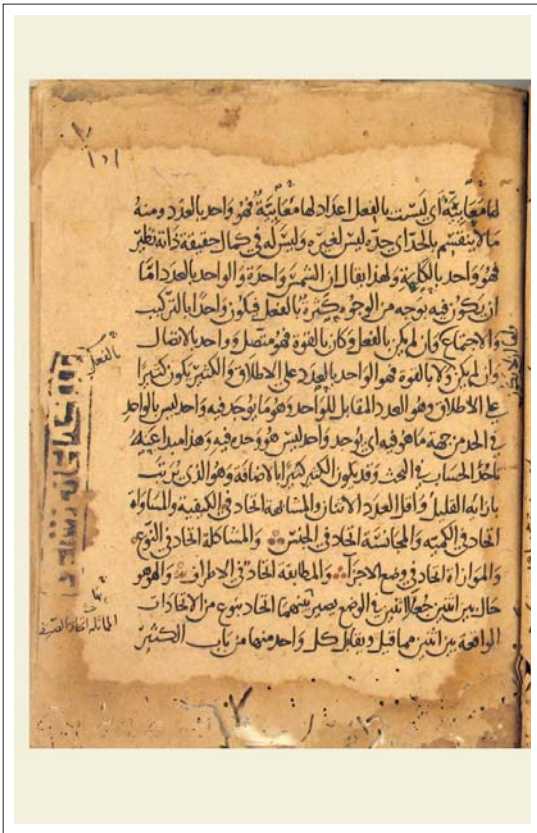 لها معاينة اي ليست بالفعل اعداد لها معاينة فهو واحد بالعدد ومنه
ما لا ينقسم بالحد اي حده ليس لغيره وليس له في كمال حقيقة ذاته نظير
فهو واحد بالكلمة ولهذا يقال ان الشمس واحدة والواحد بالعدد اما
ان يكون فيه بوجه من الوجوه كثرة بالفعل فيكون واحدا بالتركيب
والاجتماع وان لم يكن بالفعل وكان بالقوة فهو متصل وواحد بالاتصال
وان لم يكن ولا بالقوة فهو الواحد بالعدد على الاطلاق والكثير يكون كثيرا
على الاطلاق وهو العدد المقابل للواحد وهو ما يوجد فيه واحد ليس بالواحد
في الحد من جهة ما هو فيه اي يوجد واحد ليس هو وحده فيه وهذا مبدا
ياخذ الحساب في البحث وقد يكون الكثير كثيرا بالاضافة وهو الذي يترتب
بازائه القليل واقل العدد الاثنان والمشابهة اتحاد في الكيفية والمساواة
اتحاد في الكمية والمجانسة اتحاد في الجنس والمشاكلة اتحاد في النوع
والموازاة اتحاد في وضع الاجزآء والمطابقة اتحاد في الاطراف والهوهو
حال بين اثنين جعلا اثنين في الوضع يصير بينهما اتحاد بنوع من الاتحادات
الواقعة بين اثنين مما قيل ويقابل كل واحد منهما من باب الكثير
بالفعل